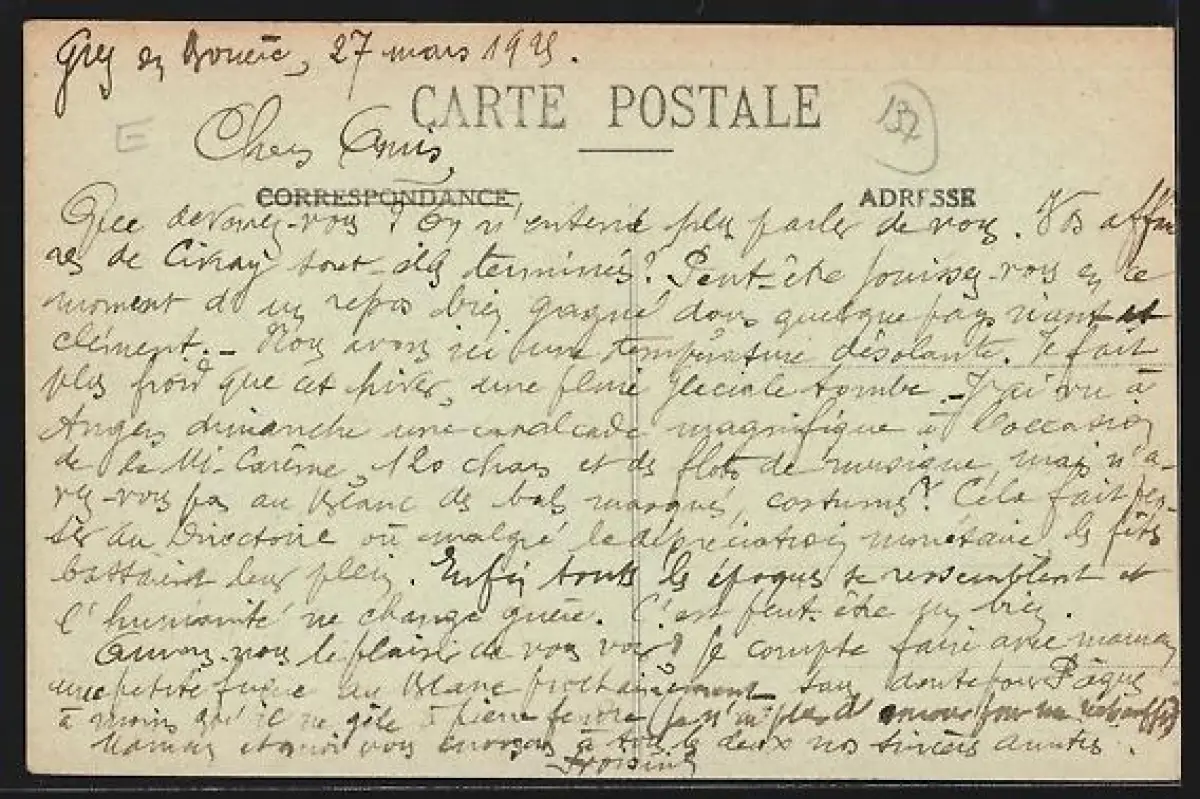 Grez en Bouère, 27 mars 1925.
CARTE POSTALE
132
Chers Amis,
CORRESPONDANCE
ADRESSE
Que devenez-vous ? On n'entend plus parler de vous. Vos affai
res de Civray sont-elles terminées ? Peut-être jouissez-vous en ce
moment d'un repos bien gagné dans quelque pays riant et
clément. - Nous avons ici une température désolante. Il fait
plus froid que cet hiver, une pluie glaciale tombe. - J'ai vu à
Angers dimanche une cavalcade magnifique à l'occasion
de la Mi-Carême, 120 chars et des flots de musique, mais n'a-
vez-vous pas au Blanc des bals masqués, costumés ? Cela fait pen-
ser au Directoire où malgré la dépréciation monétaire les fêtes
battaient leur plein. Enfin toutes les époques se ressemblent et
l'humanité ne change guère. C'est peut-être un bien.
Aurons-nous le plaisir de vous voir ? Je compte faire avec maman
une petite fugue au Blanc prochainement sans doute pour Pâques
à moins qu'il ne gèle à pierre fendre (je n'ai plus d'amour pour me réchauffer)
Maman et moi vous envoyons à tous les deux nos sincères amitiés.